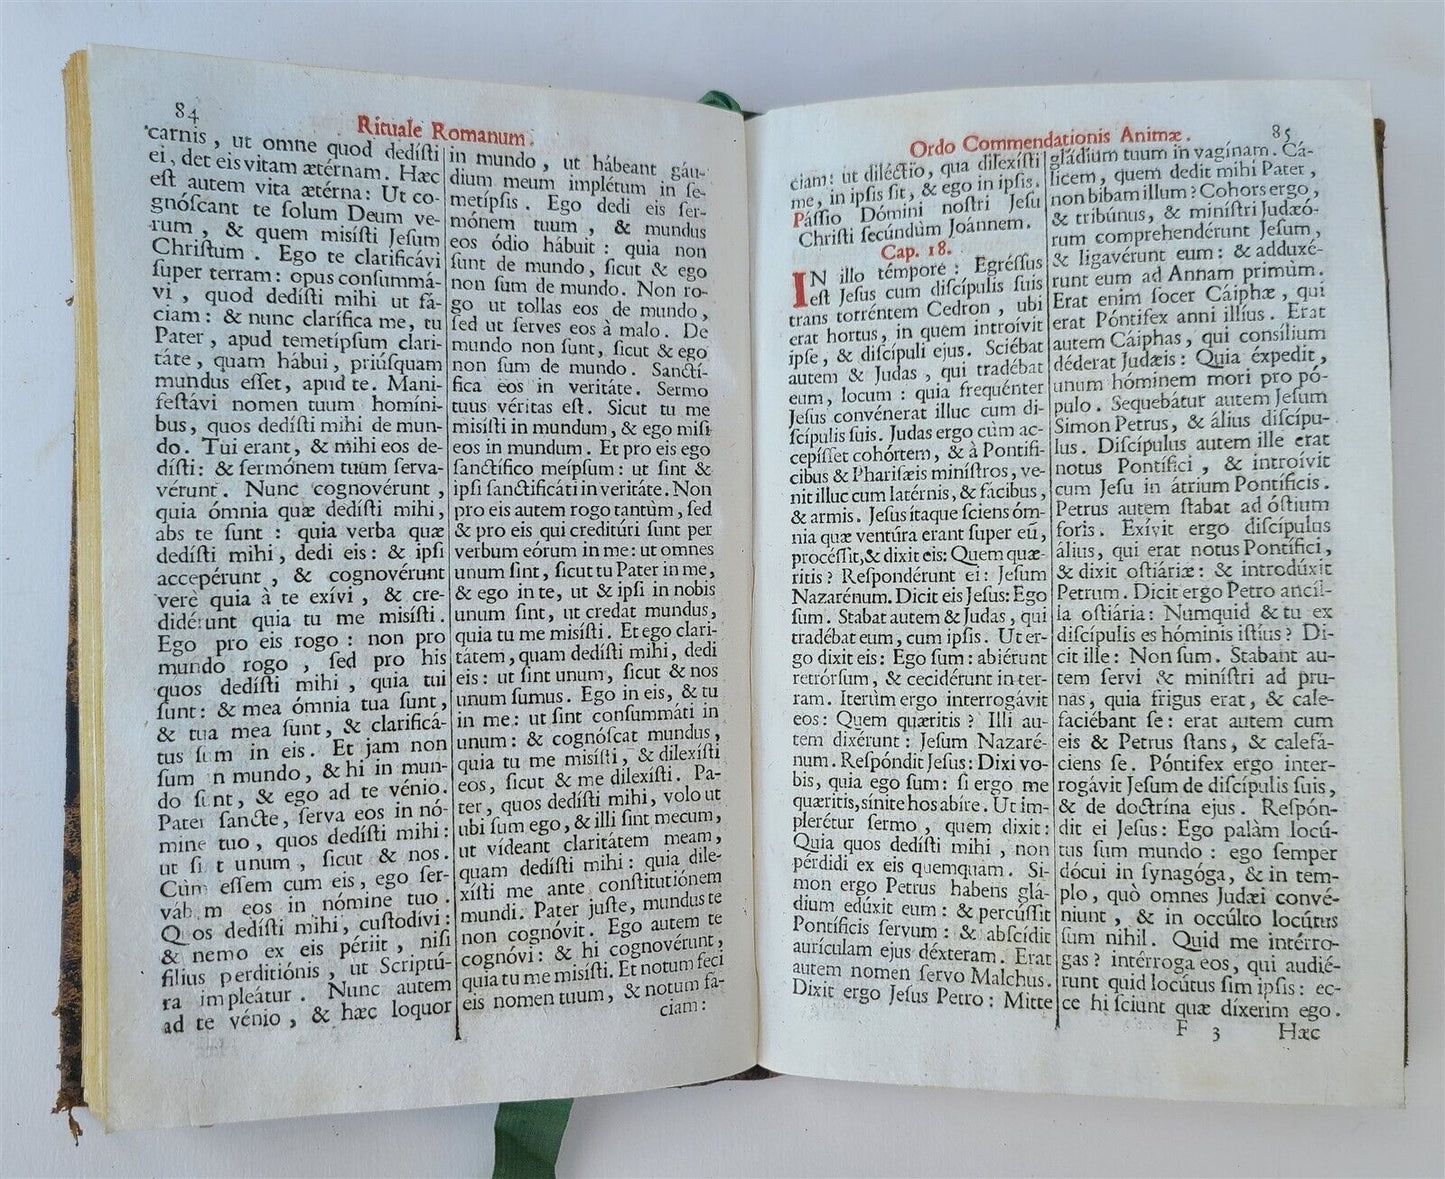 84
Rituale Romanum.
carnis, ut omne quod dedíſti
ei, det eis vitam ætérnam. Hæc
eſt autem vita ætérna: Ut co-
gnóſcant te ſolum Deum ve-
rum, & quem misíſti Jeſum
Chriſtum. Ego te clarificávi
ſuper terram: opus conſummá-
vi, quod dedíſti mihi ut fá-
ciam: & nunc clarífica me, tu
Pater, apud temetipſum clari-
táte, quam hábui, priúſquam
mundus eſſet, apud te. Mani-
feſtávi nomen tuum homíni-
bus, quos dedíſti mihi de mun-
do. Tui erant, & mihi eos de-
díſti: & ſermónem tuum ſerva-
vérunt. Nunc cognovérunt,
quia ómnia quæ dedíſti mihi,
abs te ſunt: quia verba quæ
dedíſti mihi, dedi eis: & ipſi
accepérunt, & cognovérunt
verè quia à te exívi, & cre-
didérunt quia tu me misíſti.
Ego pro eis rogo: non pro
mundo rogo, ſed pro his
quos dedíſti mihi, quia tui
ſunt: & mea ómnia tua ſunt,
& tua mea ſunt, & clarificá-
tus ſum in eis. Et jam non
ſum in mundo, & hi in mun-
do ſunt, & ego ad te vénio.
Pater ſancte, ſerva eos in nó-
mine tuo, quos dedíſti mihi:
ut ſint unum, ſicut & nos.
Cùm eſſem cum eis, ego ſer-
vábam eos in nómine tuo.
Quos dedíſti mihi, cuſtodívi:
& nemo ex eis périit, niſi
filius perditiónis, ut Scriptú-
ra impleátur. Nunc autem
ad te vénio, & hæc loquor
in mundo, ut hábeant gáu-
dium meum implétum in ſe-
metípſis. Ego dedi eis ſer-
mónem tuum, & mundus
eos ódio hábuit: quia non
ſunt de mundo, ſicut & ego
non ſum de mundo. Non ro-
go ut tollas eos de mundo,
ſed ut ſerves eos à malo. De
mundo non ſunt, ſicut & ego
non ſum de mundo. Sanctí-
fica eos in veritáte. Sermo
tuus véritas eſt. Sicut tu me
misíſti in mundum, & ego miſi
eos in mundum. Et pro eis ego
ſanctífico meípſum: ut ſint &
ipſi ſanctificáti in veritáte. Non
pro eis autem rogo tantùm, ſed
& pro eis qui creditúri ſunt per
verbum eórum in me: ut omnes
unum ſint, ſicut tu Pater in me,
& ego in te, ut & ipſi in nobis
unum ſint, ut credat mundus,
quia tu me misíſti. Et ego clari-
tátem, quam dedíſti mihi, dedi
eis: ut ſint unum, ſicut & nos
unum ſumus. Ego in eis, & tu
in me: ut ſint conſummáti in
unum: & cognóſcat mundus,
quia tu me misíſti, & dilexíſti
eos, ſicut & me dilexíſti. Pa-
ter, quos dedíſti mihi, volo ut
ubi ſum ego, & illi ſint mecum,
ut vídeant claritátem meam,
quam dedíſti mihi: quia dile-
xíſti me ante conſtitutiónem
mundi. Pater juſte, mundus te
non cognóvit. Ego autem te
cognóvi: & hi cognovérunt,
quia tu me misíſti. Et notum feci
eis nomen tuum, & notum fá-
ciam:
Ordo Commendationis Animæ.
85
ciam: ut diléctio, qua dilexíſti
me, in ipſis ſit, & ego in ipſis.
Páſſio Dómini noſtri Jeſu
Chriſti ſecúndùm Joánnem.
Cap. 18.
IN illo témpore: Egréſſus
eſt Jeſus cum diſcípulis ſuis
trans torréntem Cedron, ubi
erat hortus, in quem introívit
ipſe, & diſcípuli ejus. Sciébat
autem & Judas, qui tradébat
eum, locum: quia frequénter
Jeſus convénerat illuc cum di-
ſcípulis ſuis. Judas ergo cùm ac-
cepíſſet cohórtem, & à Pontifi-
cibus & Phariſæis miníſtros, ve-
nit illuc cum latérnis, & fácibus,
& armis. Jeſus ítaque ſciens óm-
nia quæ ventúra erant ſuper eũ,
procéſſit, & dixit eis: Quem quæ-
ritis? Reſpondérunt ei: Jeſum
Nazarénum. Dicit eis Jeſus: Ego
ſum. Stabat autem & Judas, qui
tradébat eum, cum ipſis. Ut er-
go dixit eis: Ego ſum: abiérunt
retrórſum, & cecidérunt in ter-
ram. Iterùm ergo interrogávit
eos: Quem quæritis? Illi au-
tem dixérunt: Jeſum Nazaré-
num. Reſpóndit Jeſus: Dixi vo-
bis, quia ego ſum: ſi ergo me
quæritis, sínite hos abíre. Ut im-
plerétur ſermo, quem dixit:
Quia quos dedíſti mihi, non
pérdidi ex eis quemquam. Si-
mon ergo Petrus habens glá-
dium edúxit eum: & percúſſit
Pontíficis ſervum: & abſcídit
aurículam ejus déxteram. Erat
autem nomen ſervo Malchus.
Dixit ergo Jeſus Petro: Mitte
gládium tuum in vagínam. Cá-
licem, quem dedit mihi Pater,
non bibam illum? Cohors ergo,
& tribúnus, & miníſtri Judæó-
rum comprehendérunt Jeſum,
& ligavérunt eum: & adduxé-
runt eum ad Annam primùm.
Erat enim ſocer Cáiphæ, qui
erat Póntifex anni illíus. Erat
autem Cáiphas, qui consílium
déderat Judæis: Quia éxpedit,
unum hóminem mori pro pó-
pulo. Sequebátur autem Jeſum
Simon Petrus, & álius diſcípu-
lus. Diſcípulus autem ille erat
notus Pontífici, & introívit
cum Jeſu in átrium Pontíficis.
Petrus autem ſtabat ad óſtium
foris. Exívit ergo diſcípulus
álius, qui erat notus Pontífici,
& dixit oſtiáriæ: & introdúxit
Petrum. Dicit ergo Petro ancíl-
la oſtiária: Numquid & tu ex
diſcípulis es hóminis iſtíus? Di-
cit ille: Non ſum. Stabant au-
tem ſervi & miníſtri ad pru-
nas, quia frigus erat, & cale-
faciébant ſe: erat autem cum
eis & Petrus ſtans, & calefá-
ciens ſe. Póntifex ergo inter-
rogávit Jeſum de diſcípulis ſuis,
& de doctrína ejus. Reſpón-
dit ei Jeſus: Ego palàm locú-
tus ſum mundo: ego ſemper
dócui in ſynagóga, & in tem-
plo, quò omnes Judæi convé-
niunt, & in occúlto locútus
ſum nihil. Quid me intérro-
gas? intérroga eos, qui audié-
runt quid locútus ſim ipſis: ec-
ce hi ſciunt quæ díxerim ego.
F 3 Hæc